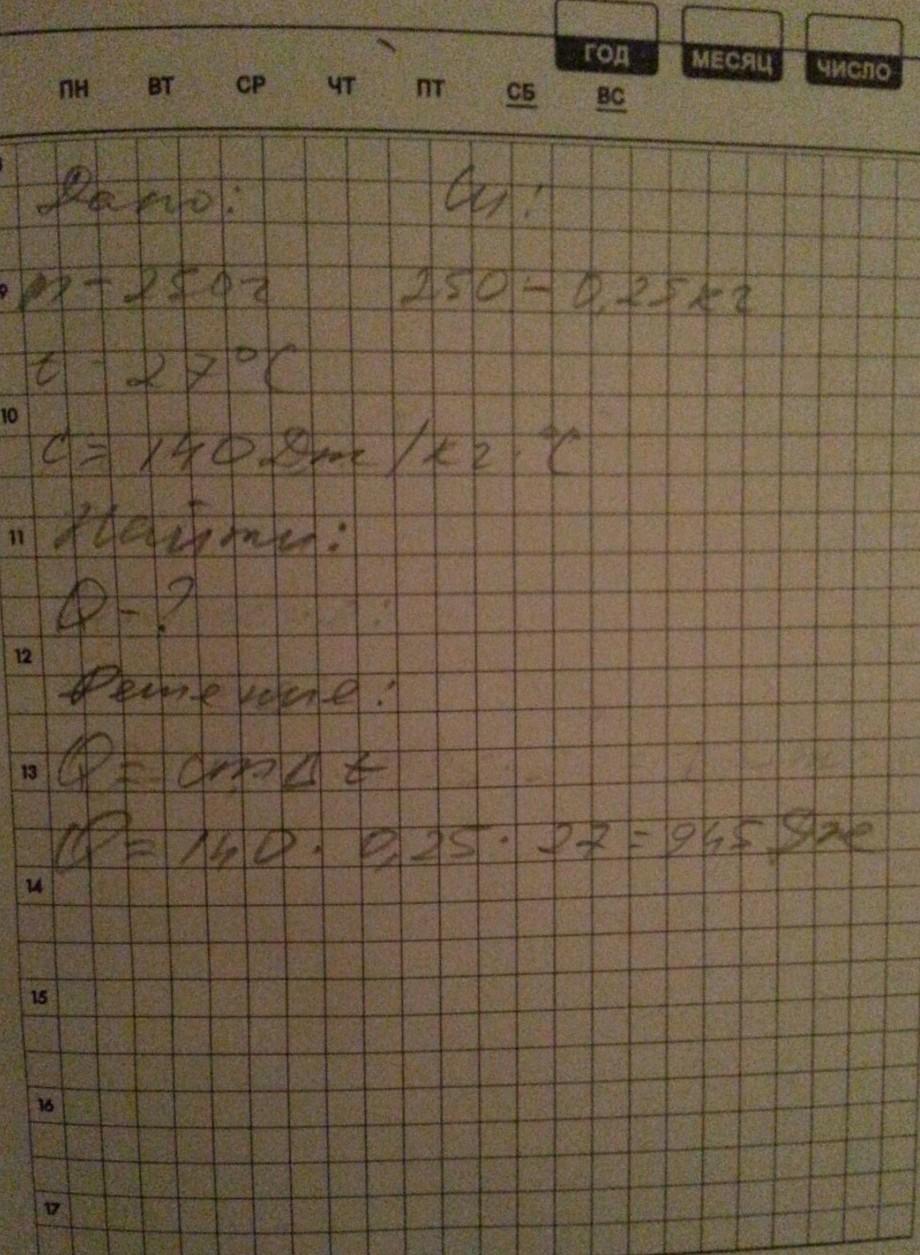 ГОД МЕСЯЦ ЧИСЛО
ПН ВТ СР ЧТ ПТ СБ ВС
Дано: Си:
9 m - 250г 250 - 0,25кг
t - 27°C
10
c = 140 Дж/кг·°C
11 Найти:
Q - ?
12
Решение:
13 Q = cmΔt
Q = 140 · 0,25 · 27 = 945 Дж
14
15
16
17